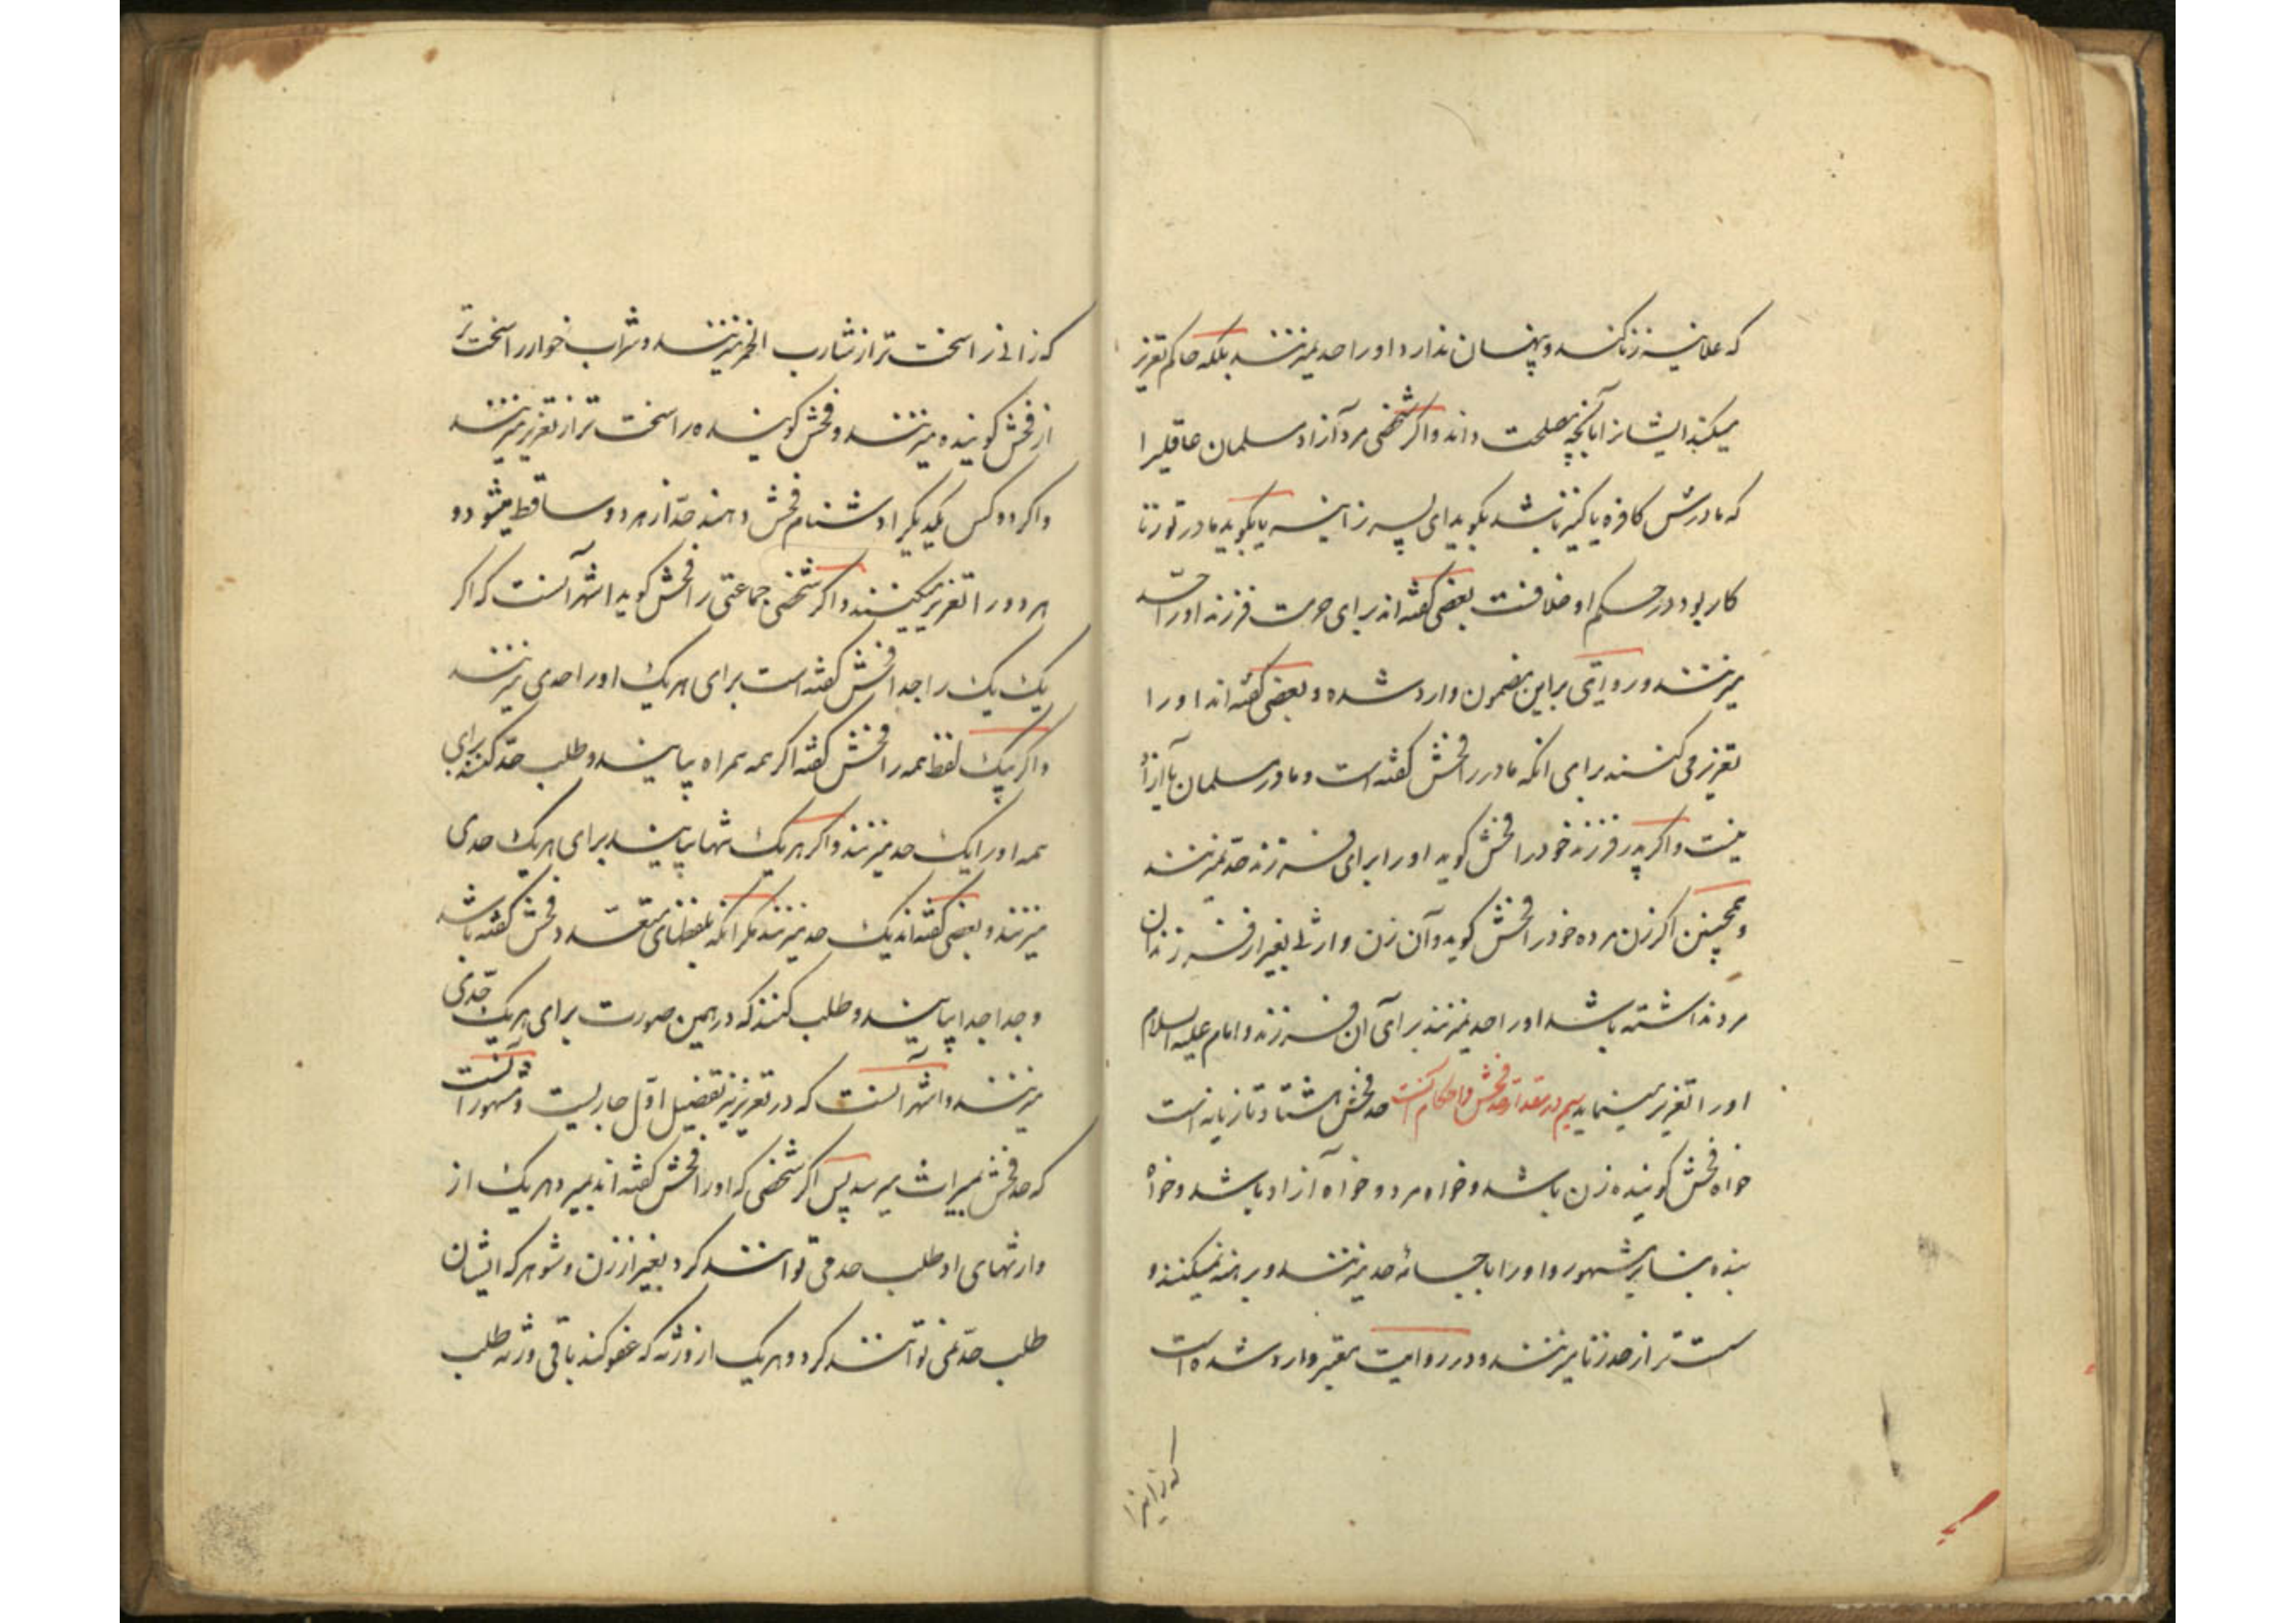 که علانیه زنا کند و پنهان ندارد او را حد نمیزنند بلکه حاکم تعزیر
میکند ایشانرا بآنچه مصلحت داند و اگر شخصی مرد آزاد مسلمان عاقلیرا
که مادرش کافره یا کنیز باشد بگوید ای پسر زانیه یا بگوید مادر تو زنا
کار بود در حکم او خلافست بعضی گفته‌اند برای حرمت فرزند او را حد
میزنند و روایتی براین مضمون وارد شده و بعضی گفته‌اند او را
تعزیر می کنند برای آنکه مادر را فحش گفته است و مادر مسلمان یا آزاد
نیست و اگر پدر فرزند خود را فحش گوید او را برای فرزند حد نمیزنند
و همچنین اگر زن مرده خود را فحش گوید و آن زن وارثی بغیر از فرزندان
مرد نداشته باشد او را حد نمیزنند برای آن فرزند و امام علیه السلام
او را تعزیر مینماید سیم در مقدار حد فحش و احکام آنست حد فحش هشتاد تازیانه است
خواه فحش گوینده زن باشد و خواه مرد و خواه آزاد باشد و خواه
بنده بنا بر مشهور و او را با جامه حد میزنند و برهنه نمیکنند و
سست تر از حد زنا میزنند و در روایت معتبر وارد شده است
که زانیرا
که زانی را سخت تر از شارب الخمر میزنند و شراب خوار را سخت تر
از فحش گوینده میزنند و فحش گوینده را سخت تر از تعزیر میزنند
و اگر دو کس یکدیگر را دشنام فحش دهند حد از هر دو ساقط میشود و
هر دو را تعزیر میکنند و اگر شخصی جماعتی را فحش گوید اشهر آنست که اگر
یک یک را جدا فحش گفته است برای هر یک او را حدی میزنند
و اگر بیک لفظ همه را فحش گفته اگر همه همراه بیایند و طلب حد کنند برای
همه او را یک حد میزنند و اگر هر یک تنها بیایند برای هر یک حدی
میزنند و بعضی گفته‌اند یک حد میزنند مگر آنکه بلفظهای متعدد فحش گفته باشد
و جدا جدا بیایند و طلب کنند که در همین صورت برای هر یک حدی
میزنند و اشهر آنست که در تعزیر نیز تفصیل اول جاریست و مشهور آنست
که حد فحش بمیراث میرسد پس اگر شخصی که او را فحش گفته‌اند بمیرد هر یک از
وارثهای او طلب حد می توانند کرد بغیر از زن و شوهر که ایشان
طلب حد نمی توانند کرد و هر یک از ورثه که عفو کند باقی ورثه طلب